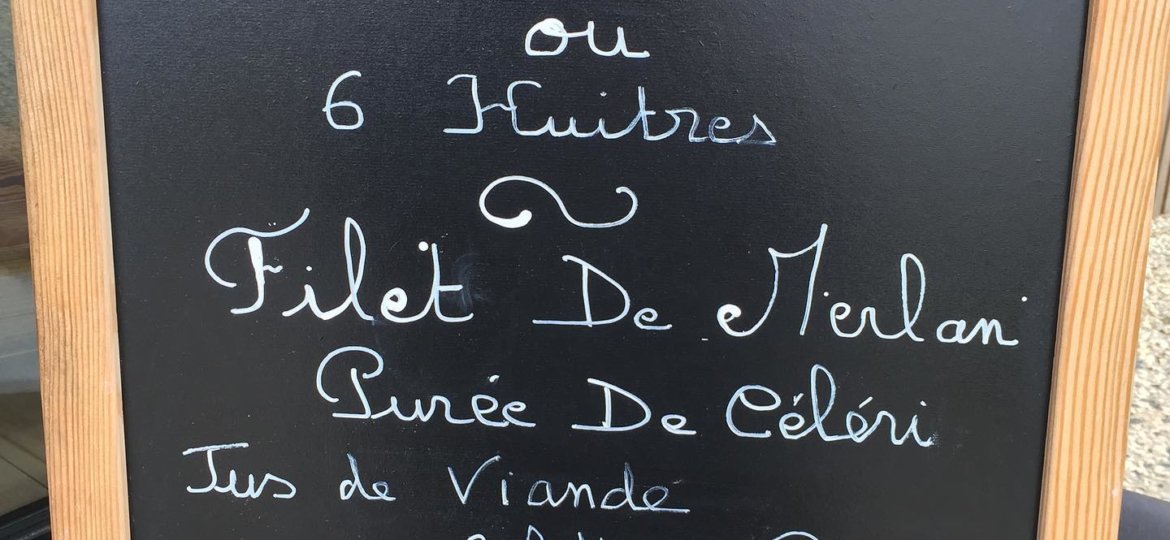 ou
6 Huitres
Filet De Merlan
Purée De Céléri
Jus de Viande